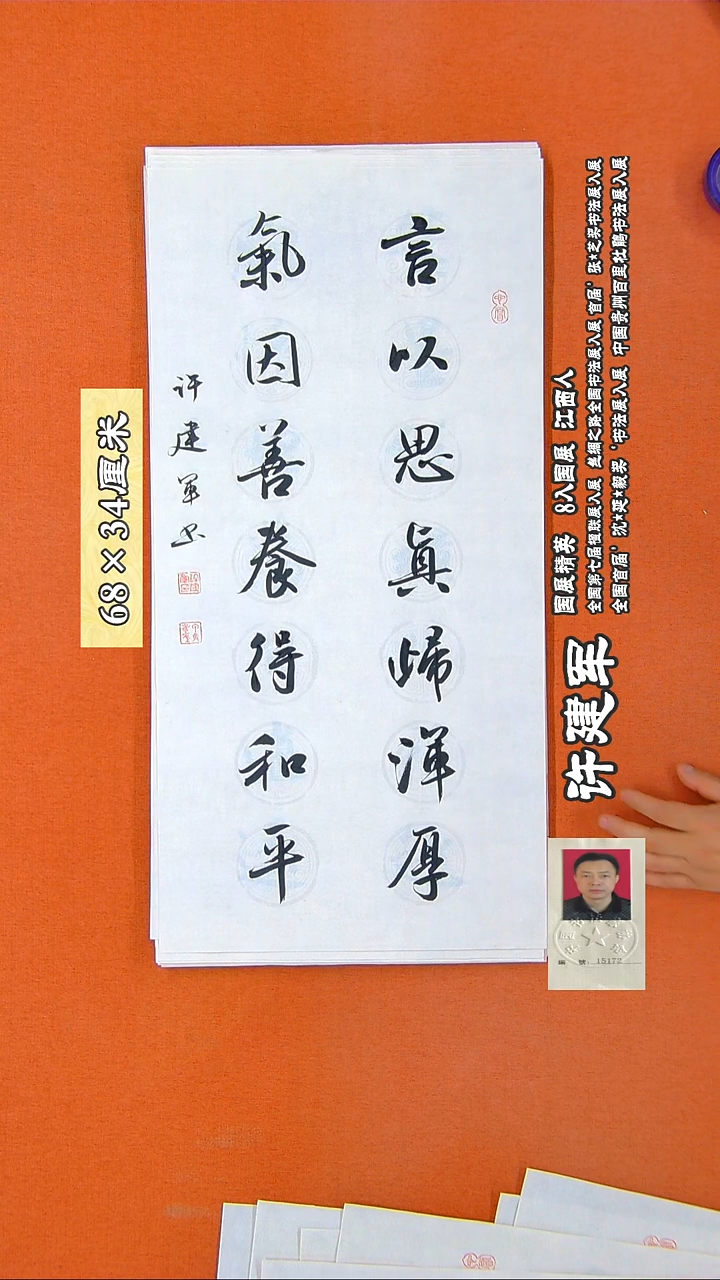 言以思真歸渾厚
氣因善養得和平
许建军书
68×34厘米
许建军
国展精英 8入国展 江西人
全国第七届楹联展入展 丝绸之路全国书法展入展 首届'张*芝奖书法展入展
全国首届'沈*延*毅奖'书法展入展 中国贵州百里杜鹃书法展入展
编 號: 15172